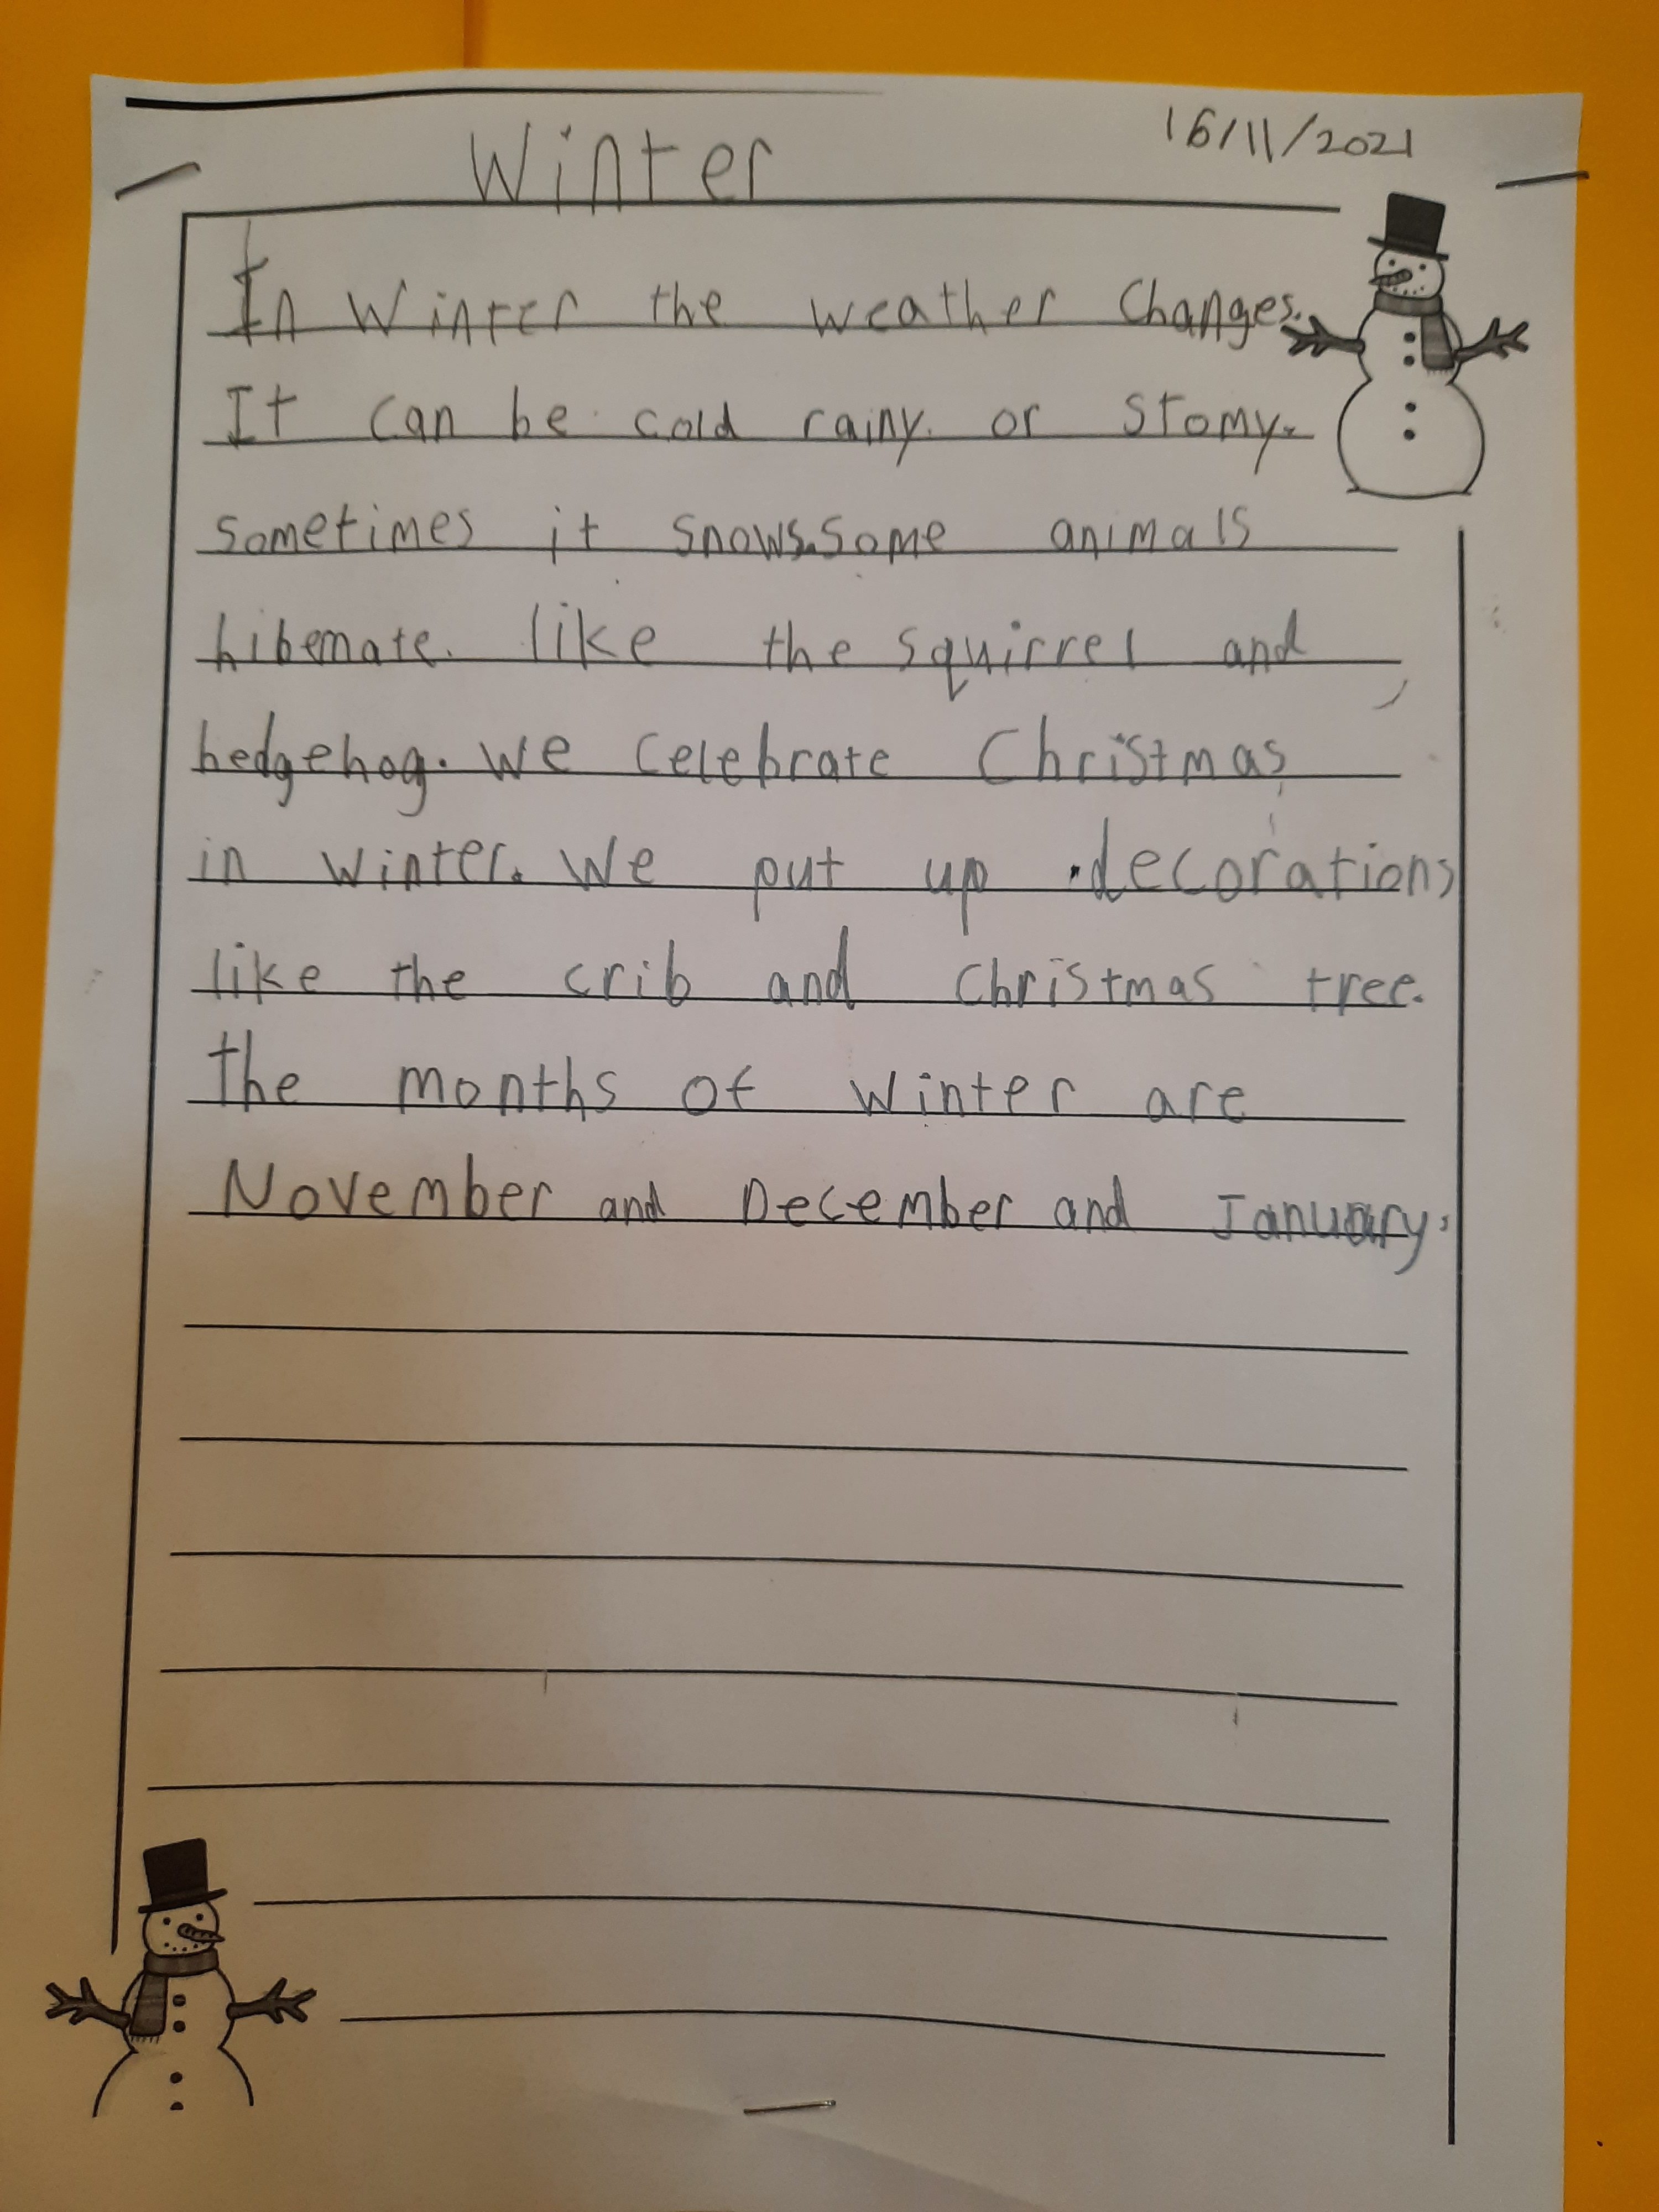 Winter
16/11/2021
In Winter the weather Changes.
It can be cold rainy or stomy.
sometimes it snows.some animals
hibernate. like the squirrel and
hedgehog. We celebrate Christmas
in winter. We put up decorations
like the crib and christmas tree.
the months of winter are
November and December and January.